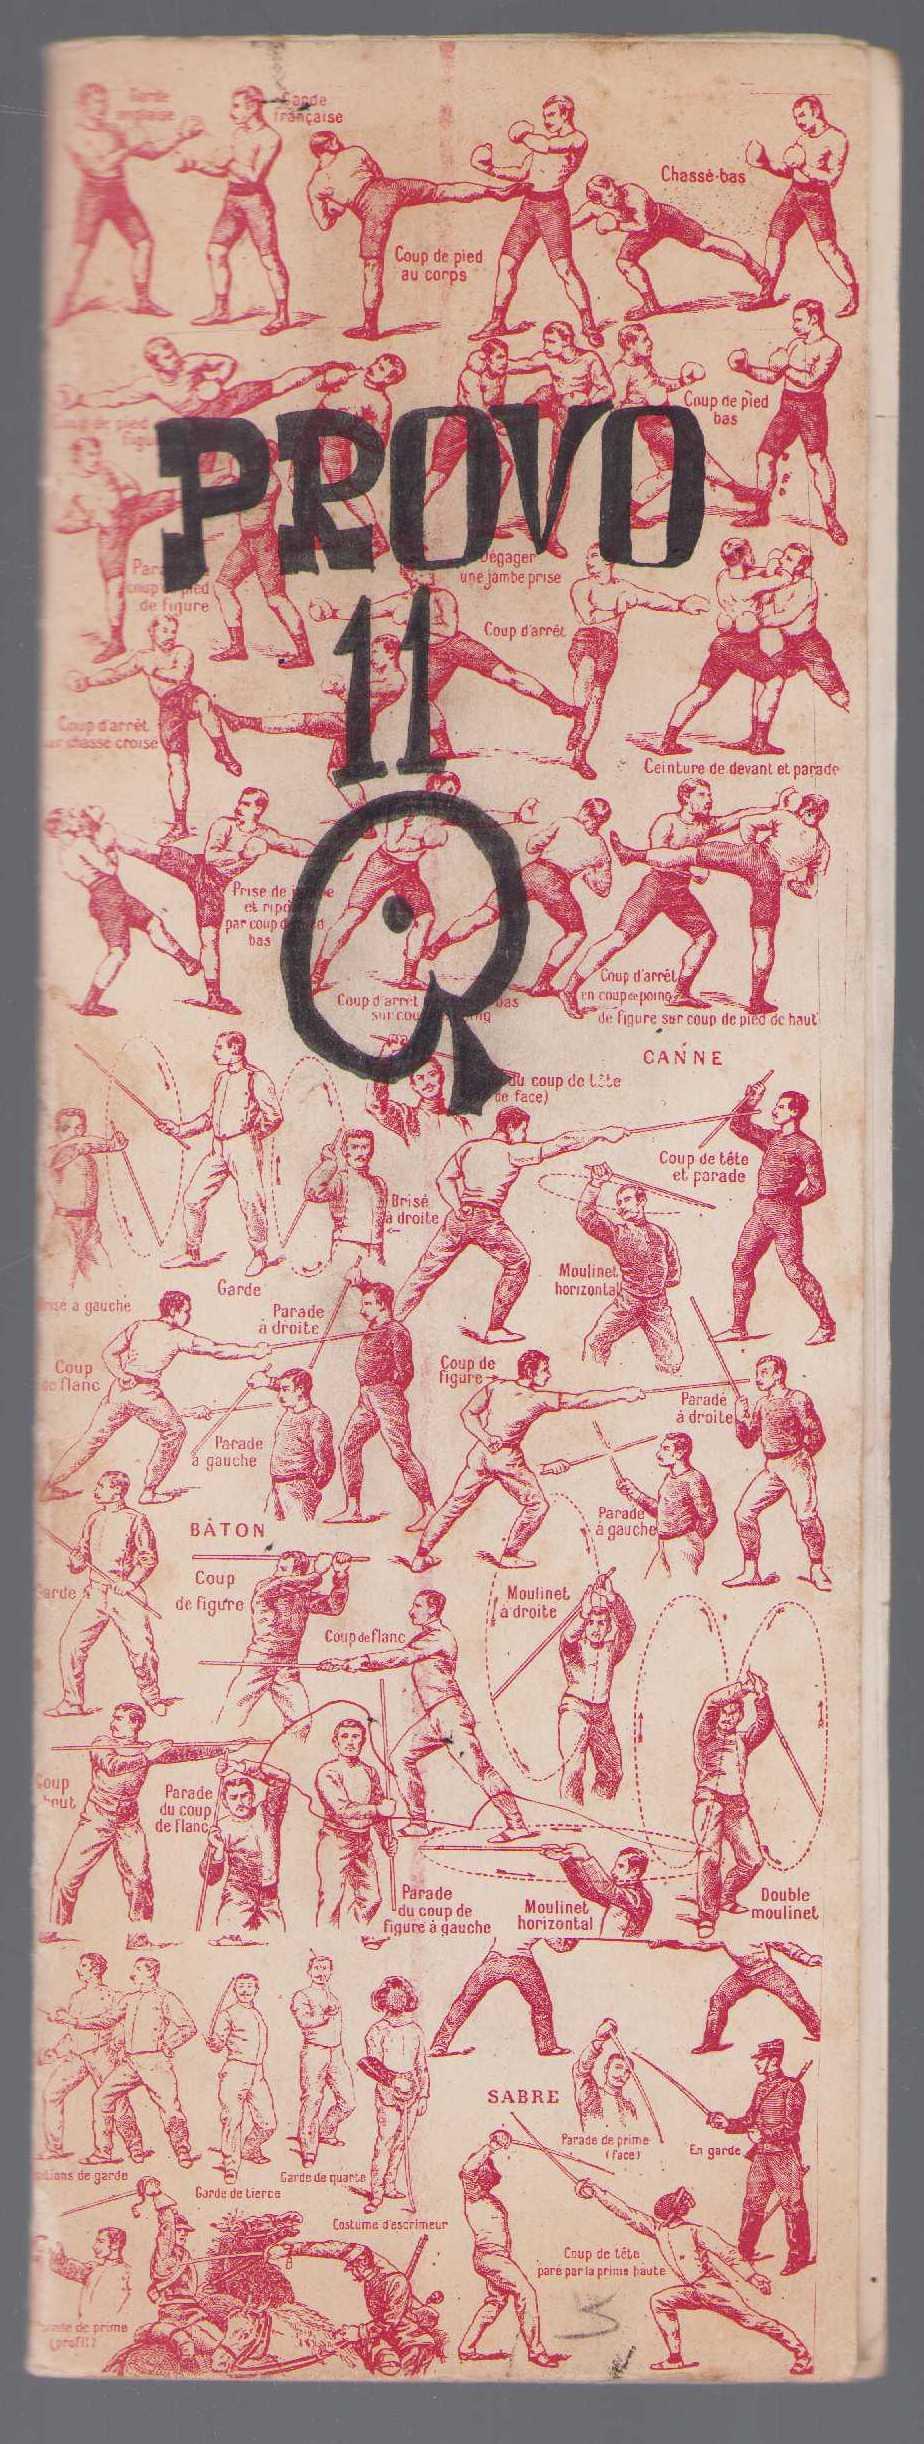 Garde
anglaise
Garde
française
Coup de pied
au corps
Chassé-bas
Coup de pied
bas
PROVO
11
coup de pied
de figure
Dégager
une jambe prise
Coup d'arrêt
Coup d'arrêt
sur chassé croisé
Ceinture de devant et parade
Prise de
et
par coup de pied
bas
Coup d'arrêt
bas
sur
Coup d'arrêt
en coup de poing
de figure sur coup de pied de haut
CANNE
du coup de tête
de face)
Coup de tête
et parade
Brisé
à droite
Moulinet
horizontal
Garde
Brisé à gauche
Parade
à droite
Coup
de flanc
Coup de
figure
Parade
à droite
Parade
à gauche
Parade
à gauche
BÂTON
Coup
de figure
Garde
Moulinet
à droite
Coup de flanc
Coup
bout
Parade
du coup
de flanc
Parade
du coup de
figure à gauche
Moulinet
horizontal
Double
moulinet
SABRE
Parade de prime
(face)
En garde
de garde
Garde de tierce
Garde de quarte
Costume d'escrimeur
Coup de tête
paré par la prime haute
de prime
(profil)